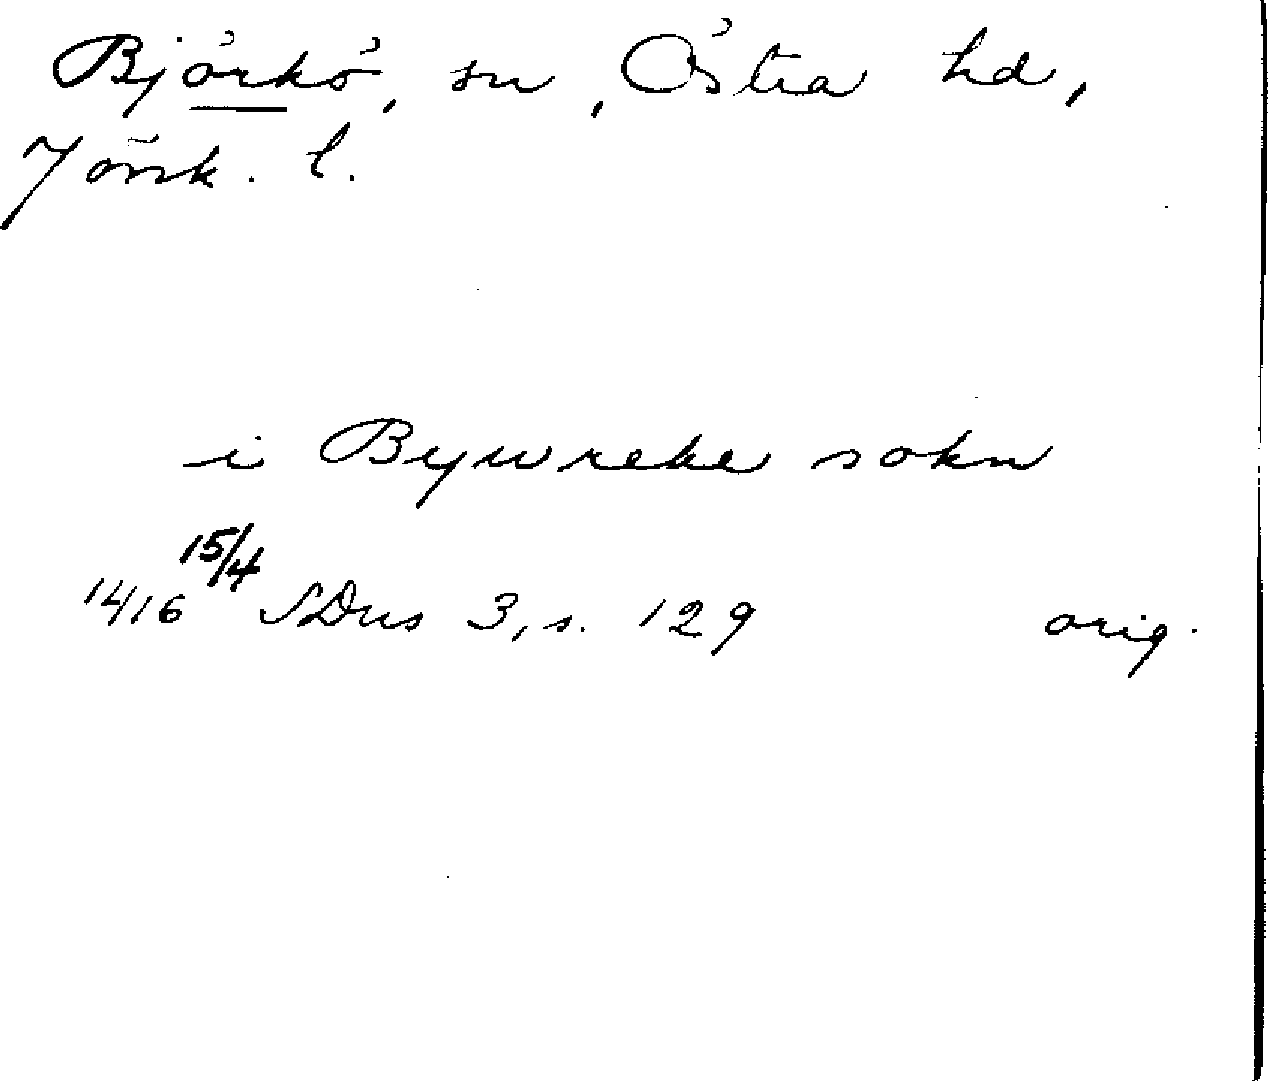 Björkö, sn, Östra hd,
Jönk. l.
i Bywreke sokn
1416 15/4 SDns 3, s. 129 orig.